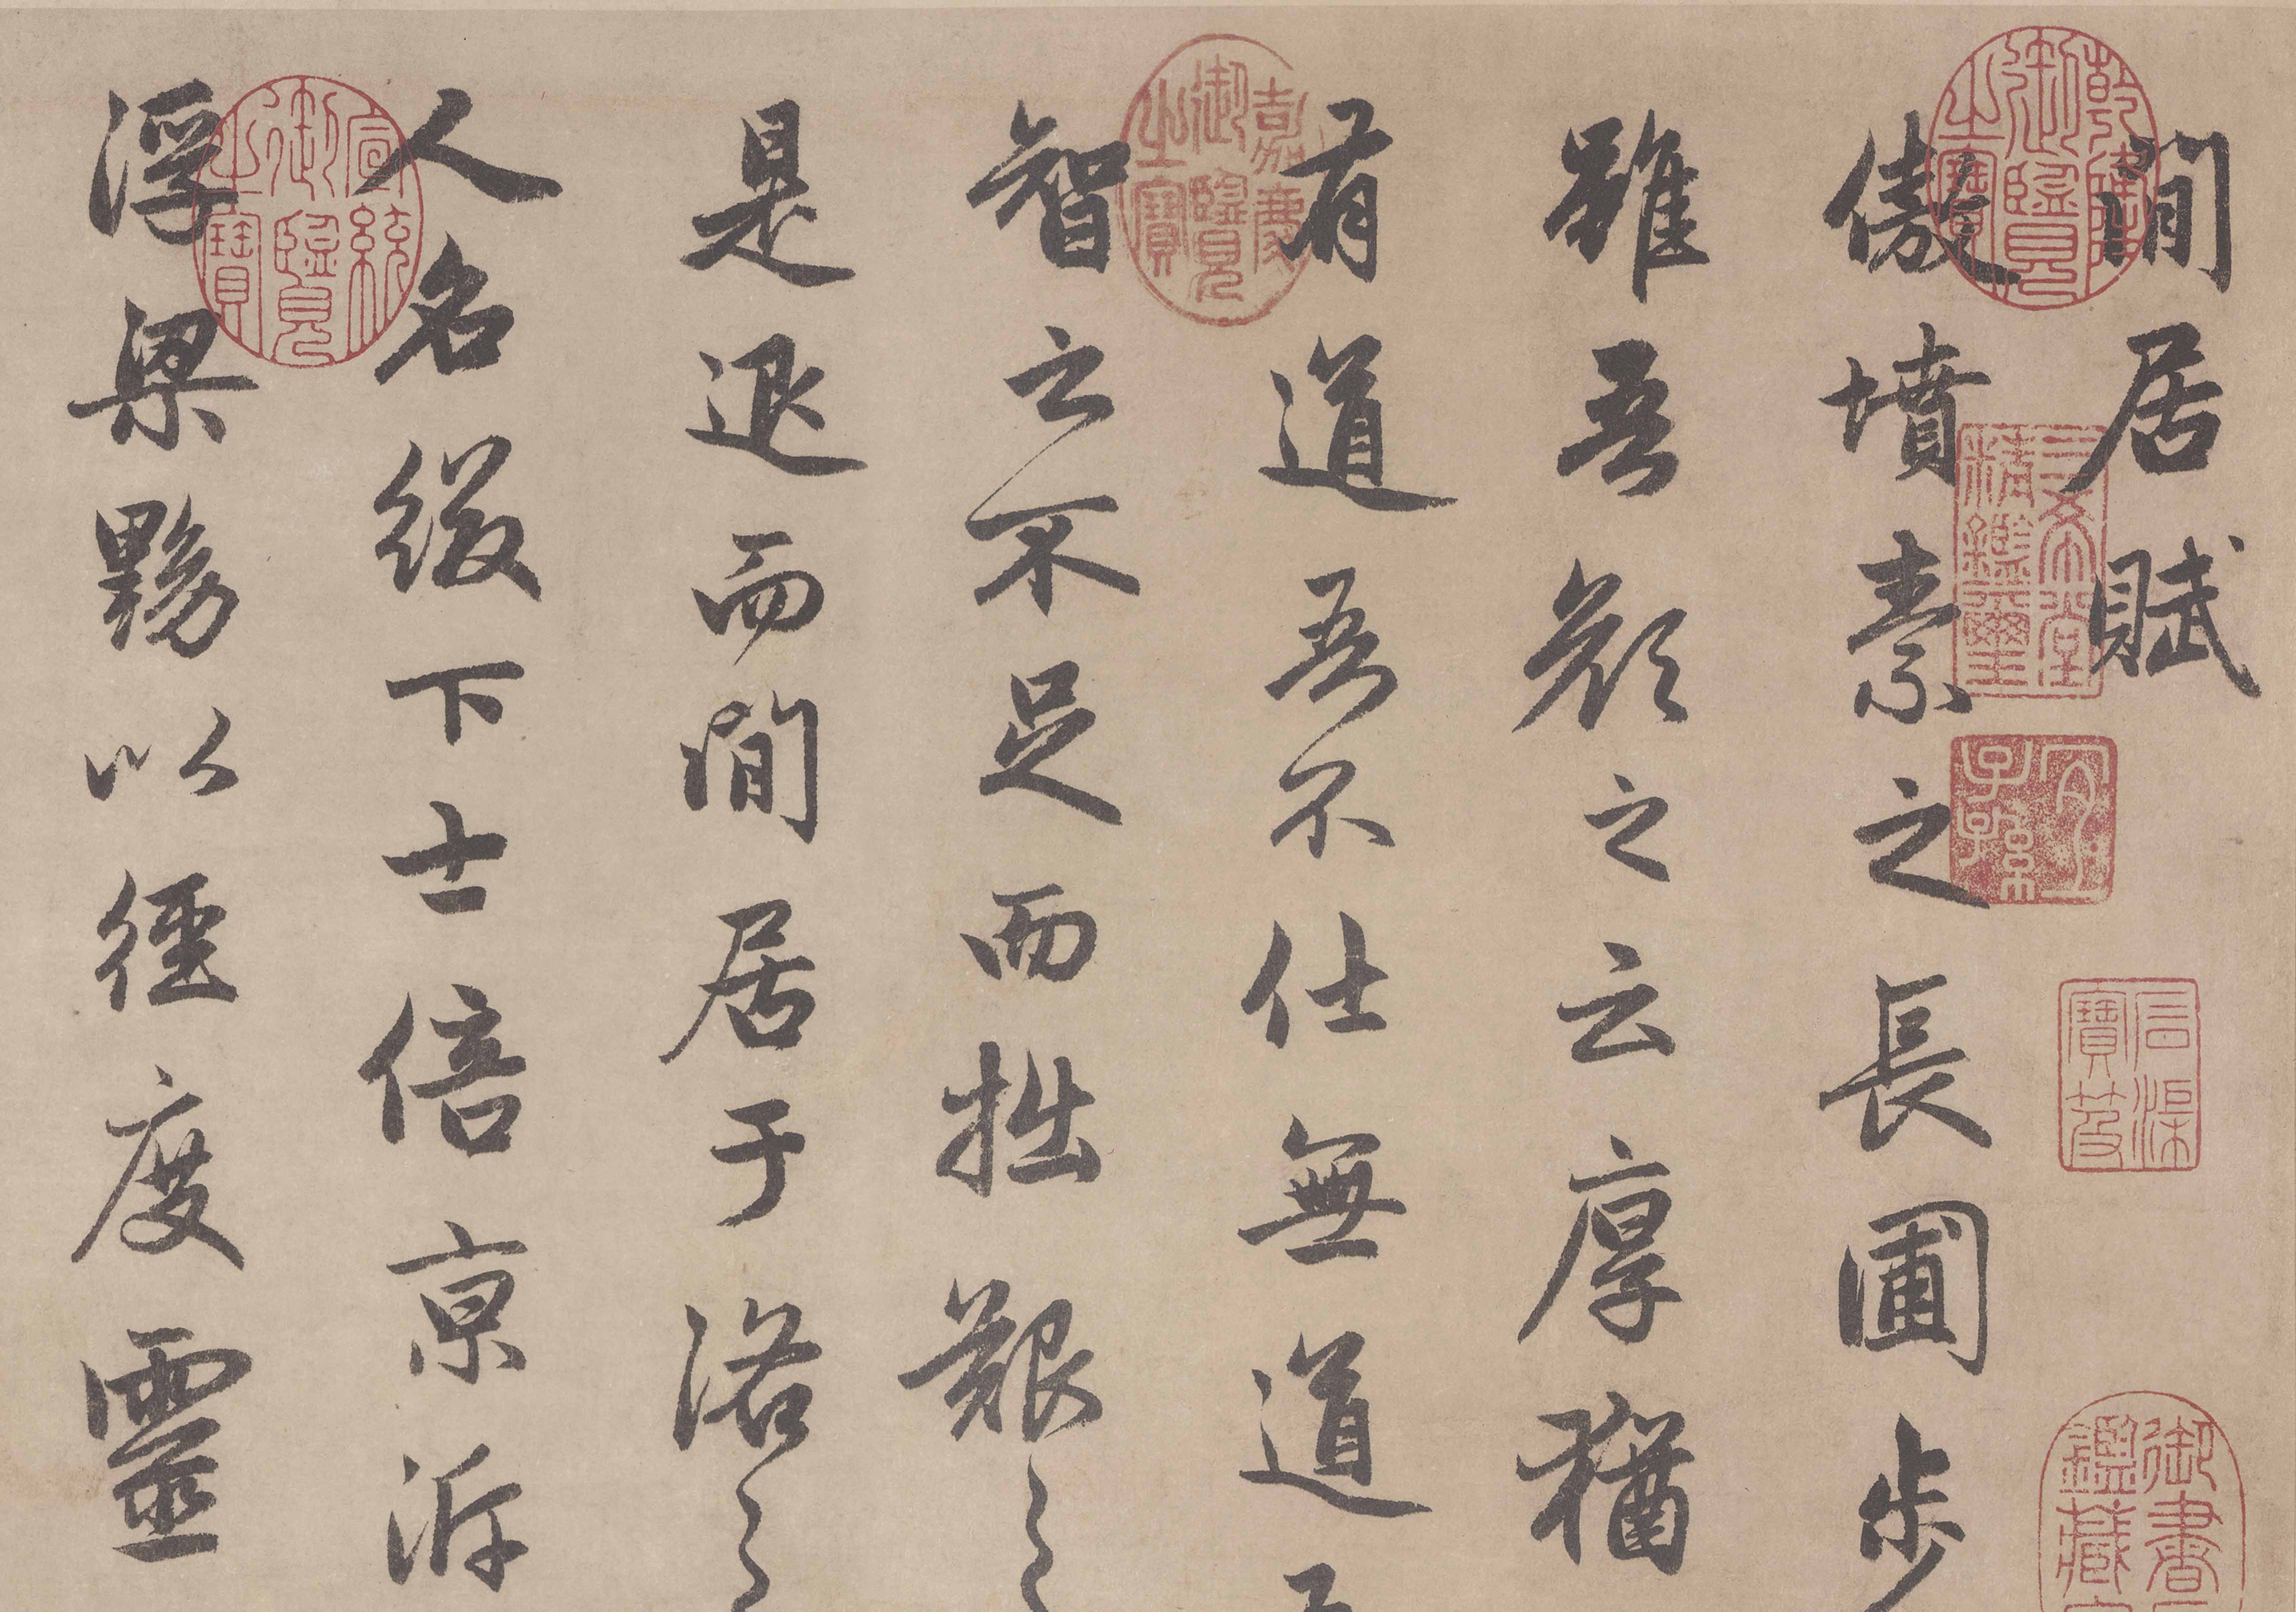 閒居賦
傲墳素之長圃步
雖吾顏之云厚猶
有道吾不仕無道
智之不足而拙艱之
是退而閒居于洛之
人名綴下士倍京泝
浮梁黝以徑度靈
乾隆御覽之寶
三希堂精鑑璽
宜子孫
石渠寶笈
御書
鑑藏
嘉慶御覽之寶
宣統御覽之寶